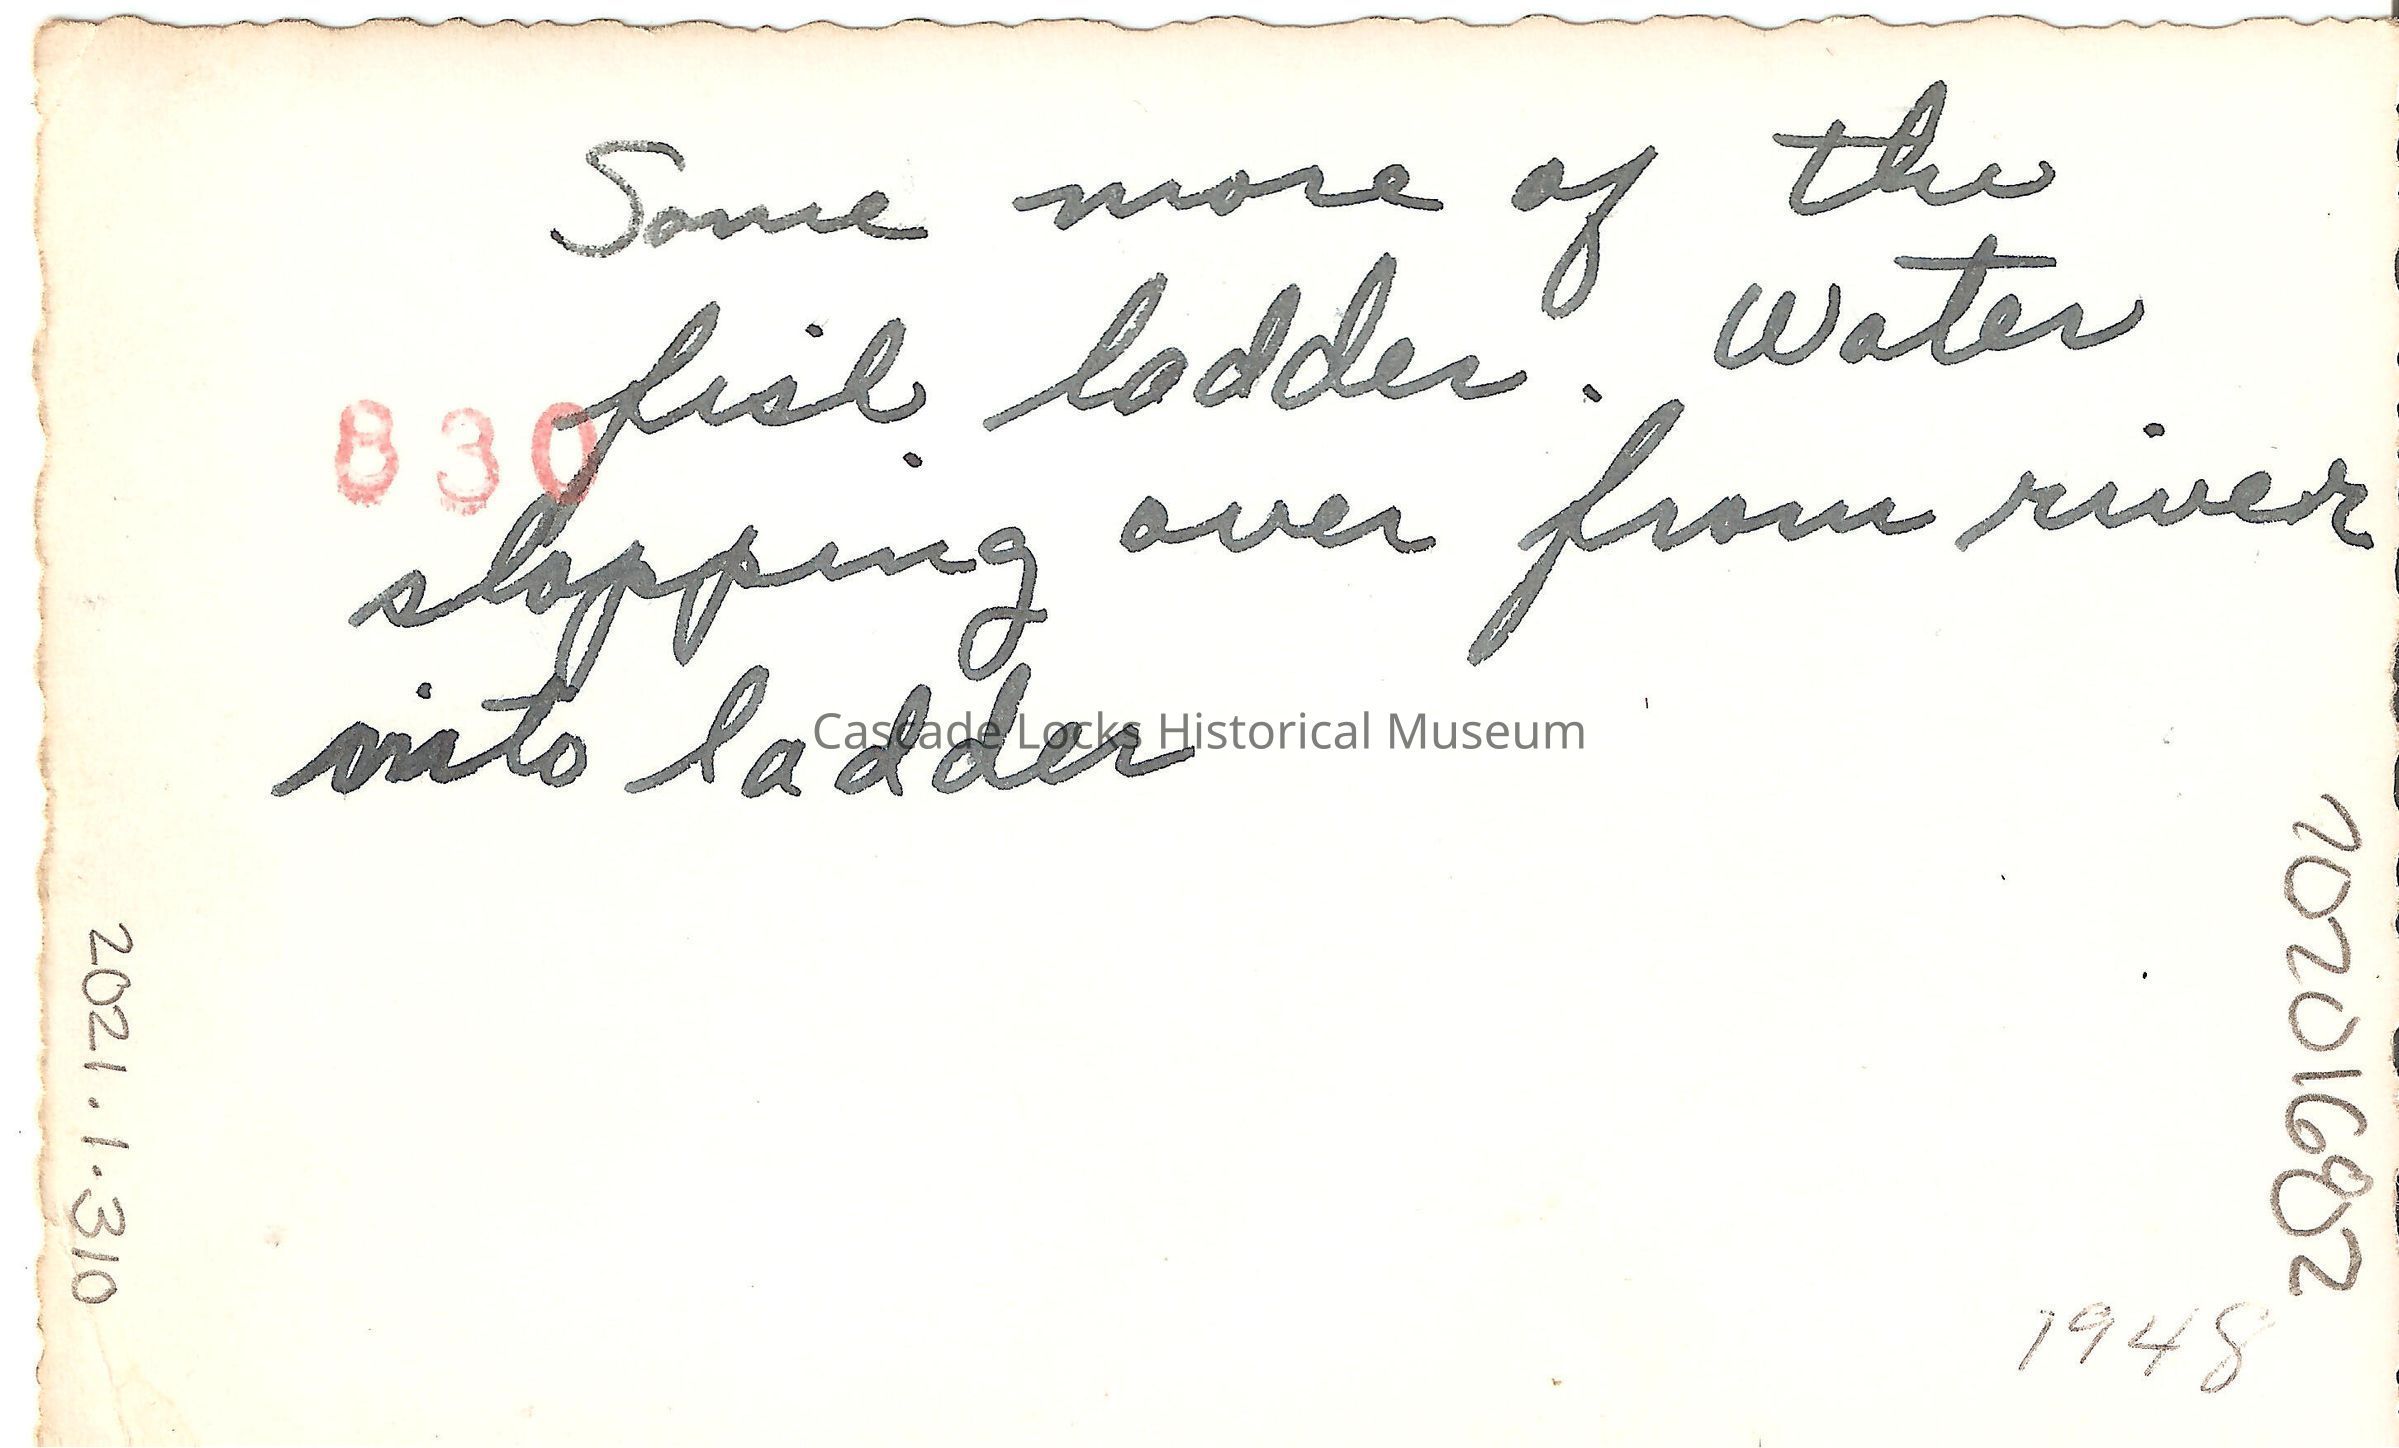 Some more of the
fish ladder. Water
830
slopping over from river
into ladder
Cascade Locks Historical Museum
202016802
2021.1.310
1948